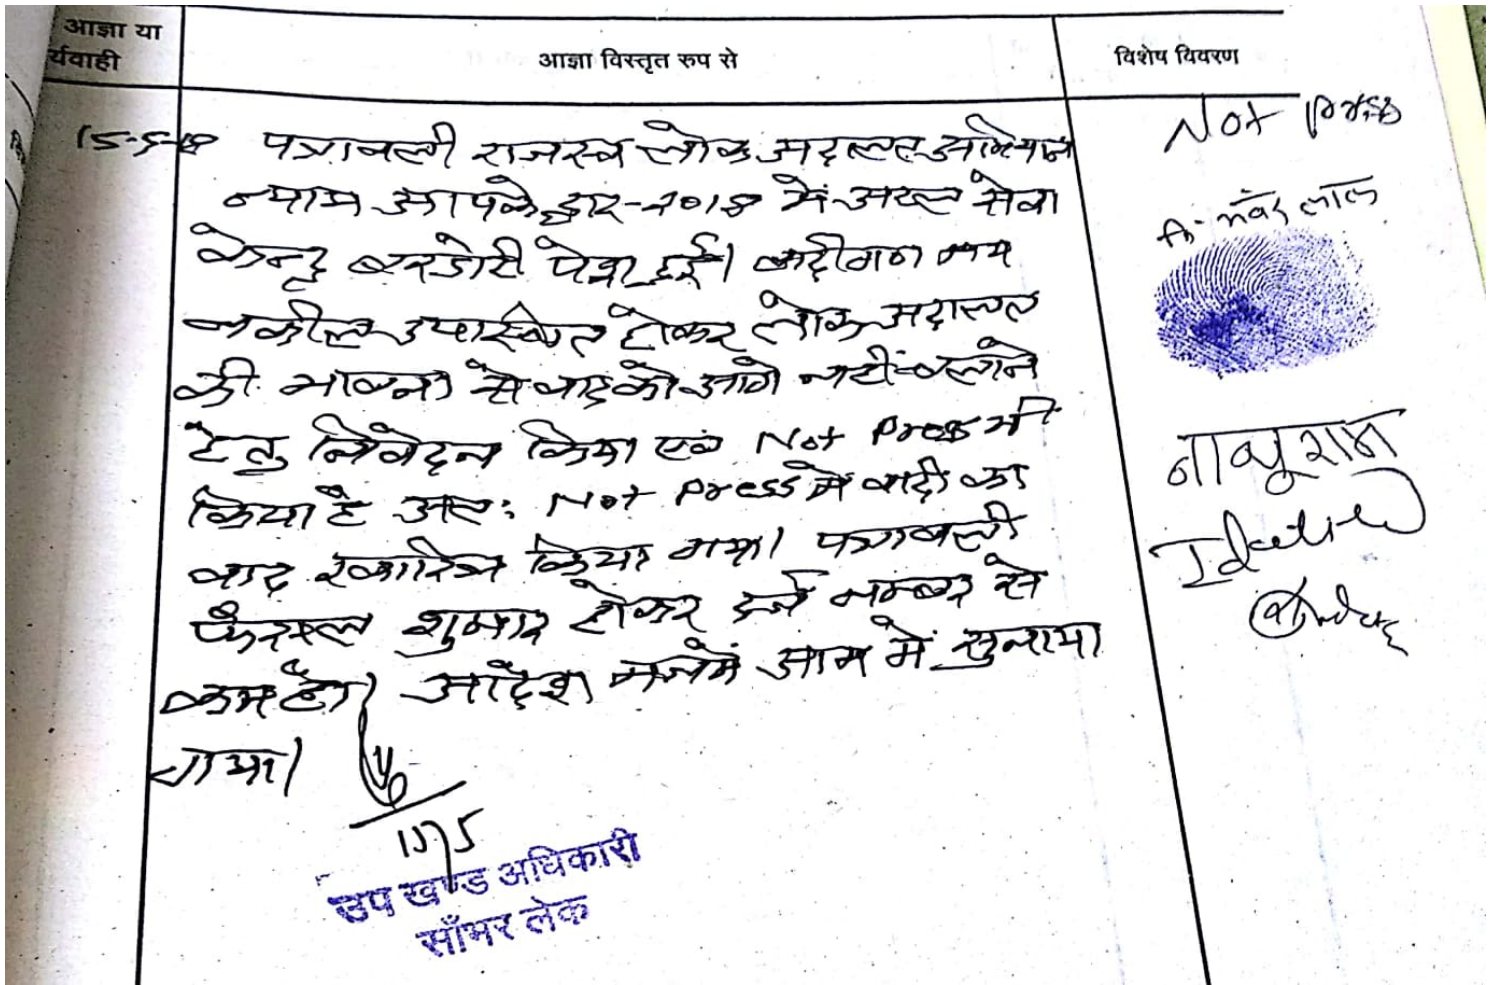 आज्ञा या
र्यवाही
आज्ञा विस्तृत रुप से
विशेष विवरण
15-5-18 पत्रावली राजस्व लोक अदालत अभियान
न्याय आपके द्वार-2018 में अटल सेवा
केन्द्र पेश हुई। वादीगण मय
वकील उपस्थित होकर लोक अदालत
की भावना से वाद को आगे नहीं चलाने
हेतु निवेदन किया एवं Not Press भी
किया है अतः Not Press में वादी का
वाद खारिज किया गया। पत्रावली
फैसल शुमार होकर दर्ज नम्बर से
कम हो। आदेश मजमें आम में सुनाया
गया।
15/5
उप खण्ड अधिकारी
साँभर लेक
Not press
भंवर लाल
नाथूराम